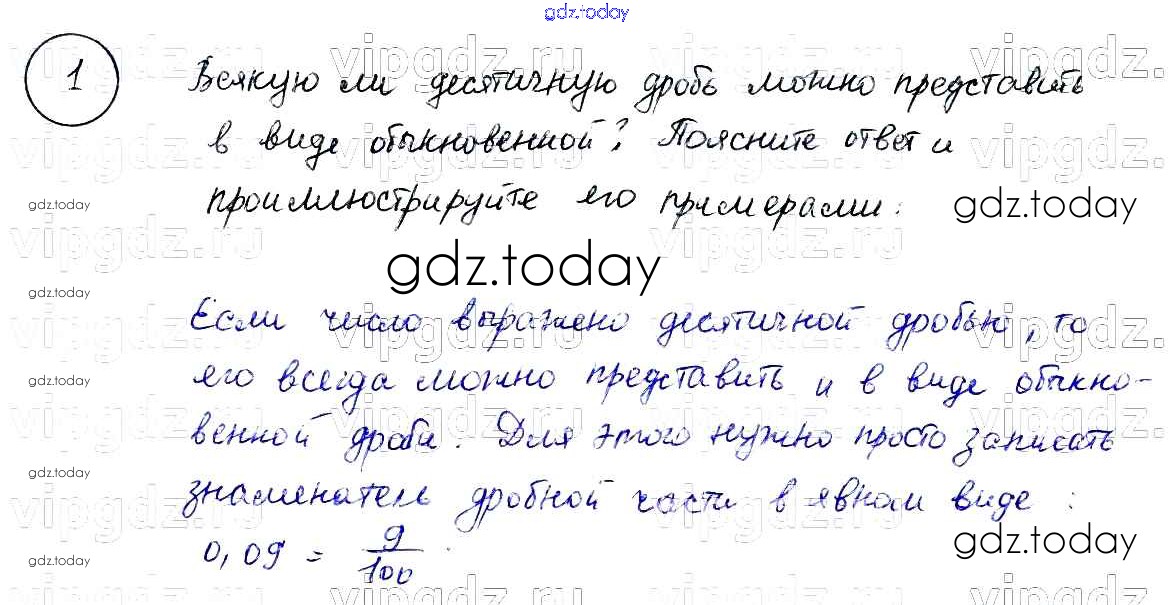 gdz.today
1
Всякую ли десятичную дробь можно представить
в виде обыкновенной? Поясните ответ и
проиллюстрируйте его примерами.
gdz.today
gdz.today
gdz.today
gdz.today
Если число выражено десятичной дробью, то
его всегда можно представить и в виде обыкно-
gdz.today
венной дроби. Для этого нужно просто записать
gdz.today
знаменатель дробной части в явном виде:
0,09 = 9/100
gdz.today
gdz.today
vipgdz.ru